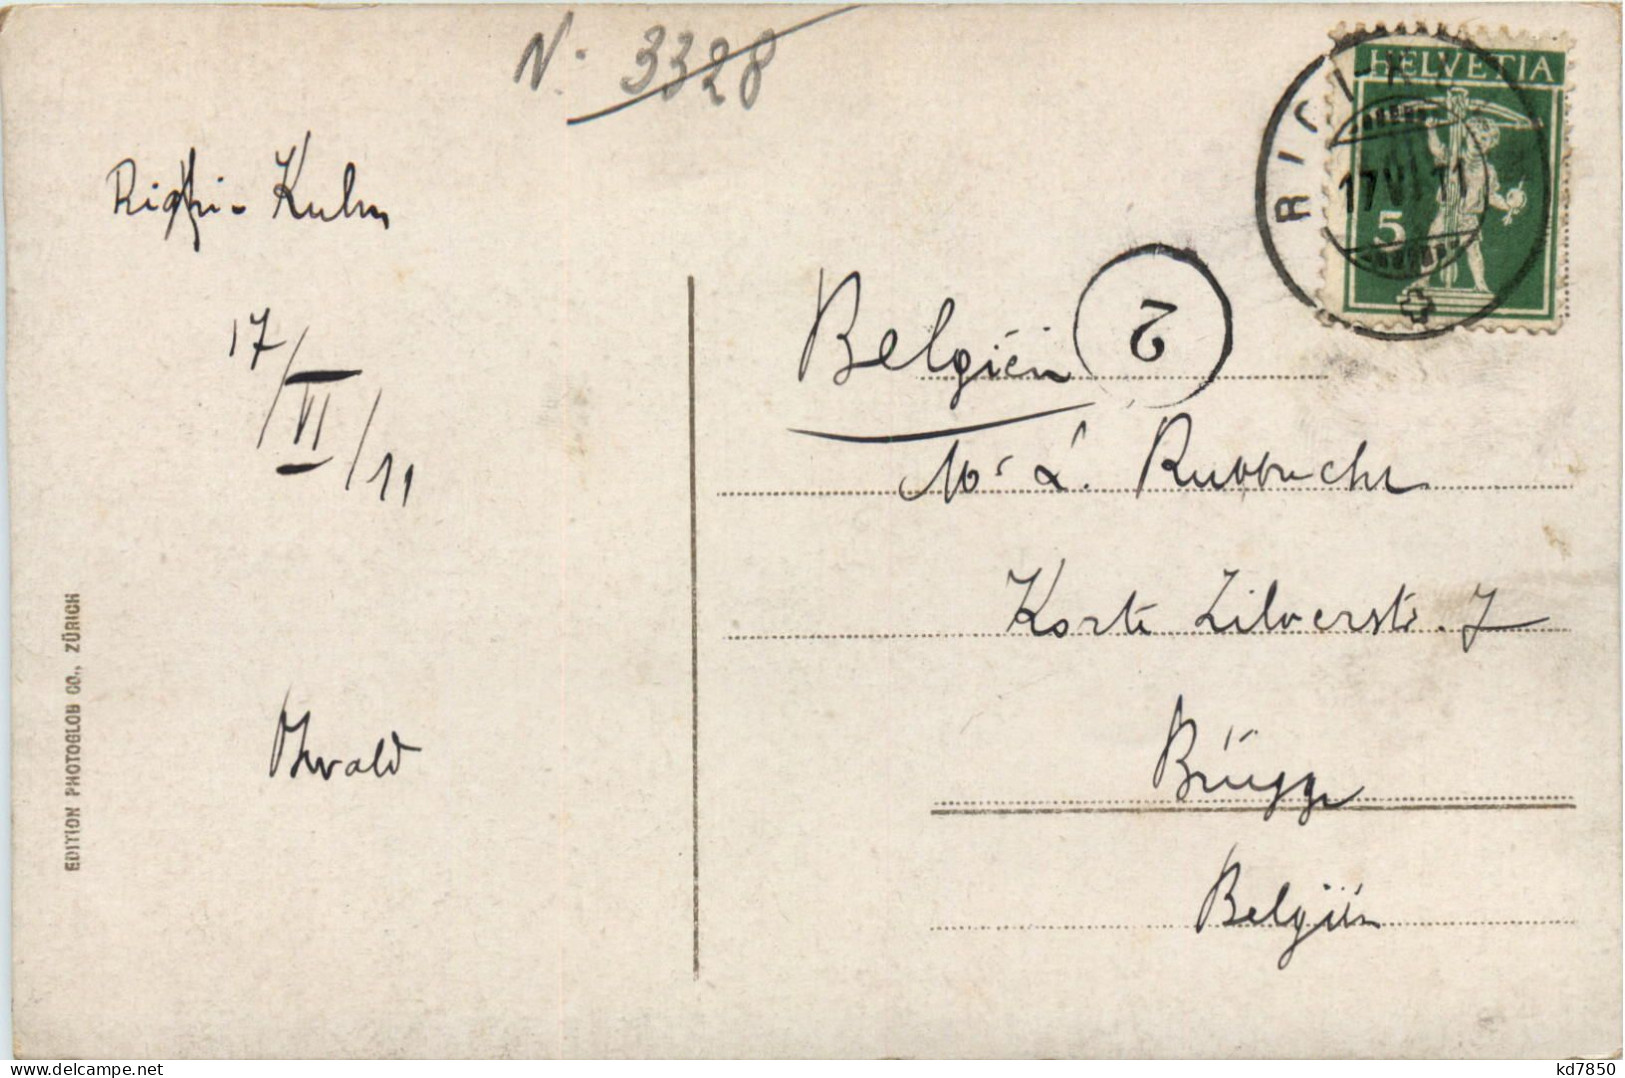 N. 3328
HELVETIA
RIGI-K
17 VI 11
5
Righi - Kulm
17/VI/11
Belgiën
2
Mr L. Rubbrecht
Korte Zilverstr. 7
Brügge
Belgiën
EDITION PHOTOGLOB CO., ZÜRICH
delcampe.net
kd7850